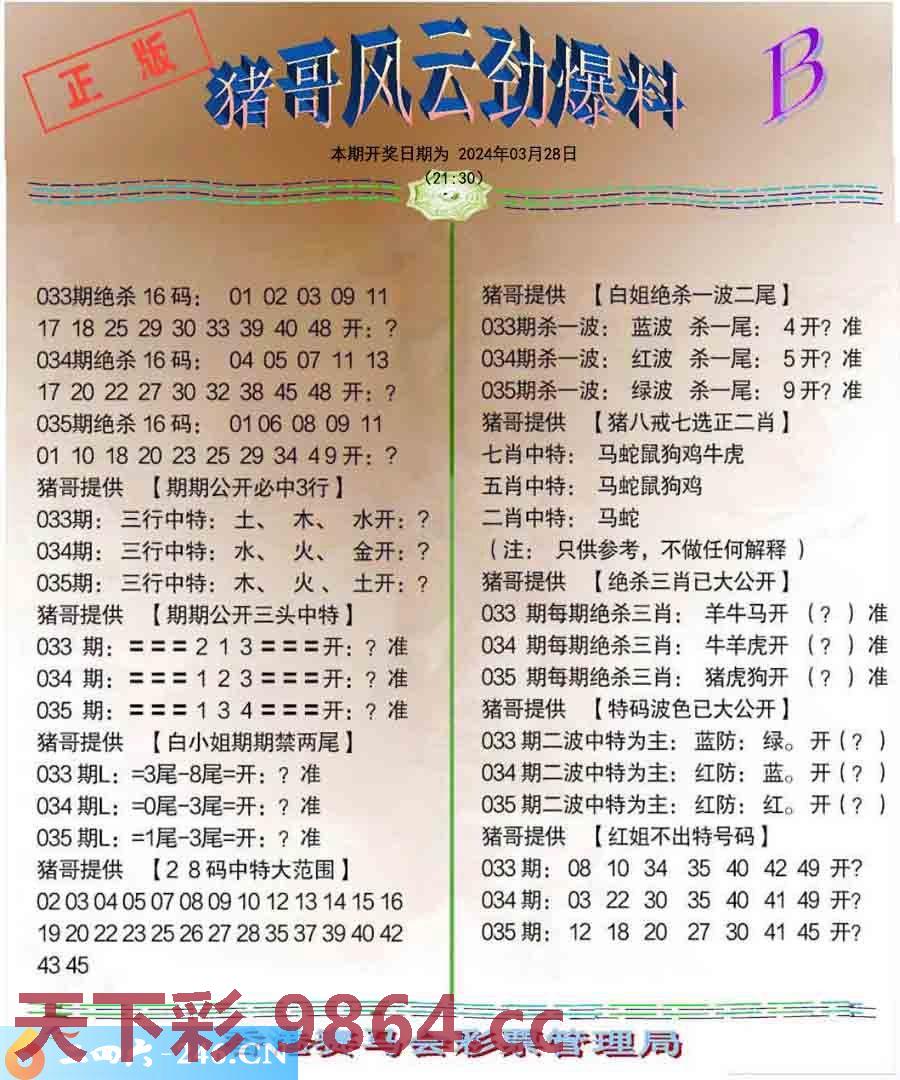 正版
猪哥风云劲爆料
B
本期开奖日期为 2024年03月28日
(21:30)
033期绝杀 16 码： 01 02 03 09 11
17 18 25 29 30 33 39 40 48 开：?
034期绝杀 16 码： 04 05 07 11 13
17 20 22 27 30 32 38 45 48 开：?
035期绝杀 16 码： 01 06 08 09 11
01 10 18 20 23 25 29 34 4 9 开：?
猪哥提供 【期期公开必中3行】
033期：三行中特：土、 木、 水开：?
034期：三行中特：水、 火、 金开：?
035期：三行中特：木、 火、 土开：?
猪哥提供 【期期公开三头中特】
033 期：＝＝＝2 1 3＝＝＝开：? 准
034 期：＝＝＝1 2 3＝＝＝开：? 准
035 期：＝＝＝1 3 4＝＝＝开：? 准
猪哥提供 【白小姐期期禁两尾】
033期L：=3尾-8尾=开：? 准
034期L：=0尾-3尾=开：? 准
035期L：=1尾-3尾=开：? 准
猪哥提供 【2 8 码中特大范围】
02 03 04 05 07 08 09 10 12 13 14 15 16
19 20 22 23 25 26 27 28 35 37 39 40 42
43 45
猪哥提供 【白姐绝杀一波二尾】
033期杀一波： 蓝波 杀一尾： 4开? 准
034期杀一波： 红波 杀一尾： 5开? 准
035期杀一波： 绿波 杀一尾： 9开? 准
猪哥提供 【猪八戒七选正二肖】
七肖中特： 马蛇鼠狗鸡牛虎
五肖中特： 马蛇鼠狗鸡
二肖中特： 马蛇
（注： 只供参考，不做任何解释 ）
猪哥提供 【绝杀三肖已大公开】
033 期每期绝杀三肖： 羊牛马开 （? ）准
034 期每期绝杀三肖： 牛羊虎开 （? ）准
035 期每期绝杀三肖： 猪虎狗开 （? ）准
猪哥提供 【特码波色已大公开】
033期二波中特为主：蓝防：绿。开（? ）
034期二波中特为主：红防：蓝。开（? ）
035期二波中特为主：红防：红。开（? ）
猪哥提供 【红姐不出特号码】
033期： 08 10 34 35 40 42 49 开?
034期： 03 22 30 35 40 41 49 开?
035期： 12 18 20 27 30 41 45 开?
天下彩 9864.cc
二四六-246.CN
赛马会彩票管理局